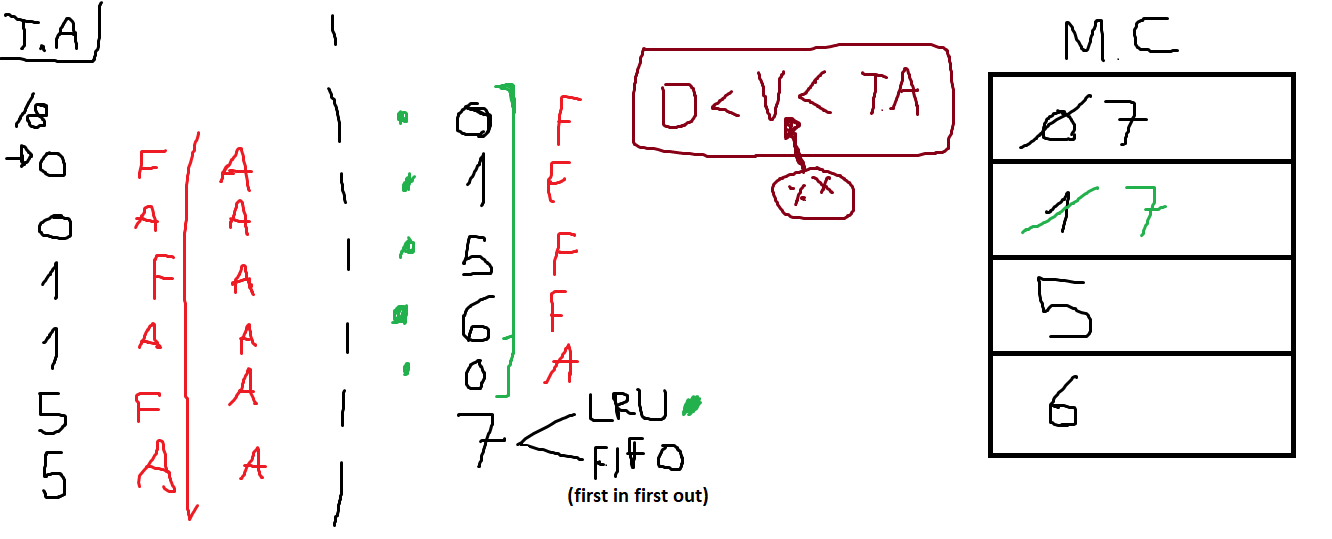 T.A
M.C
/8
→0 F A
0 A A
1 F A
1 A A
5 F A
5 A A
0 F
1 F
5 F
6 F
0 A
7
LRU
FIFO
(first in first out)
D < V < T.A
% X
0 7
1 7
5
6